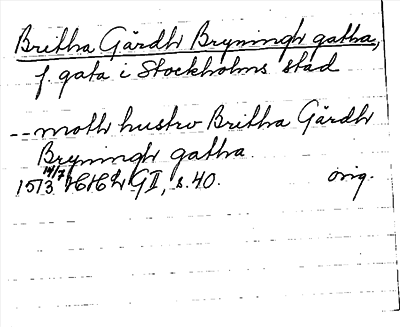 Britha Gårdh Bryningh gatha,
f. gata i Stockholms stad
-- moth hustrv Britha Gårdh
Bryningh gatha.
14/7
1513 HH GII, s. 40. orig.